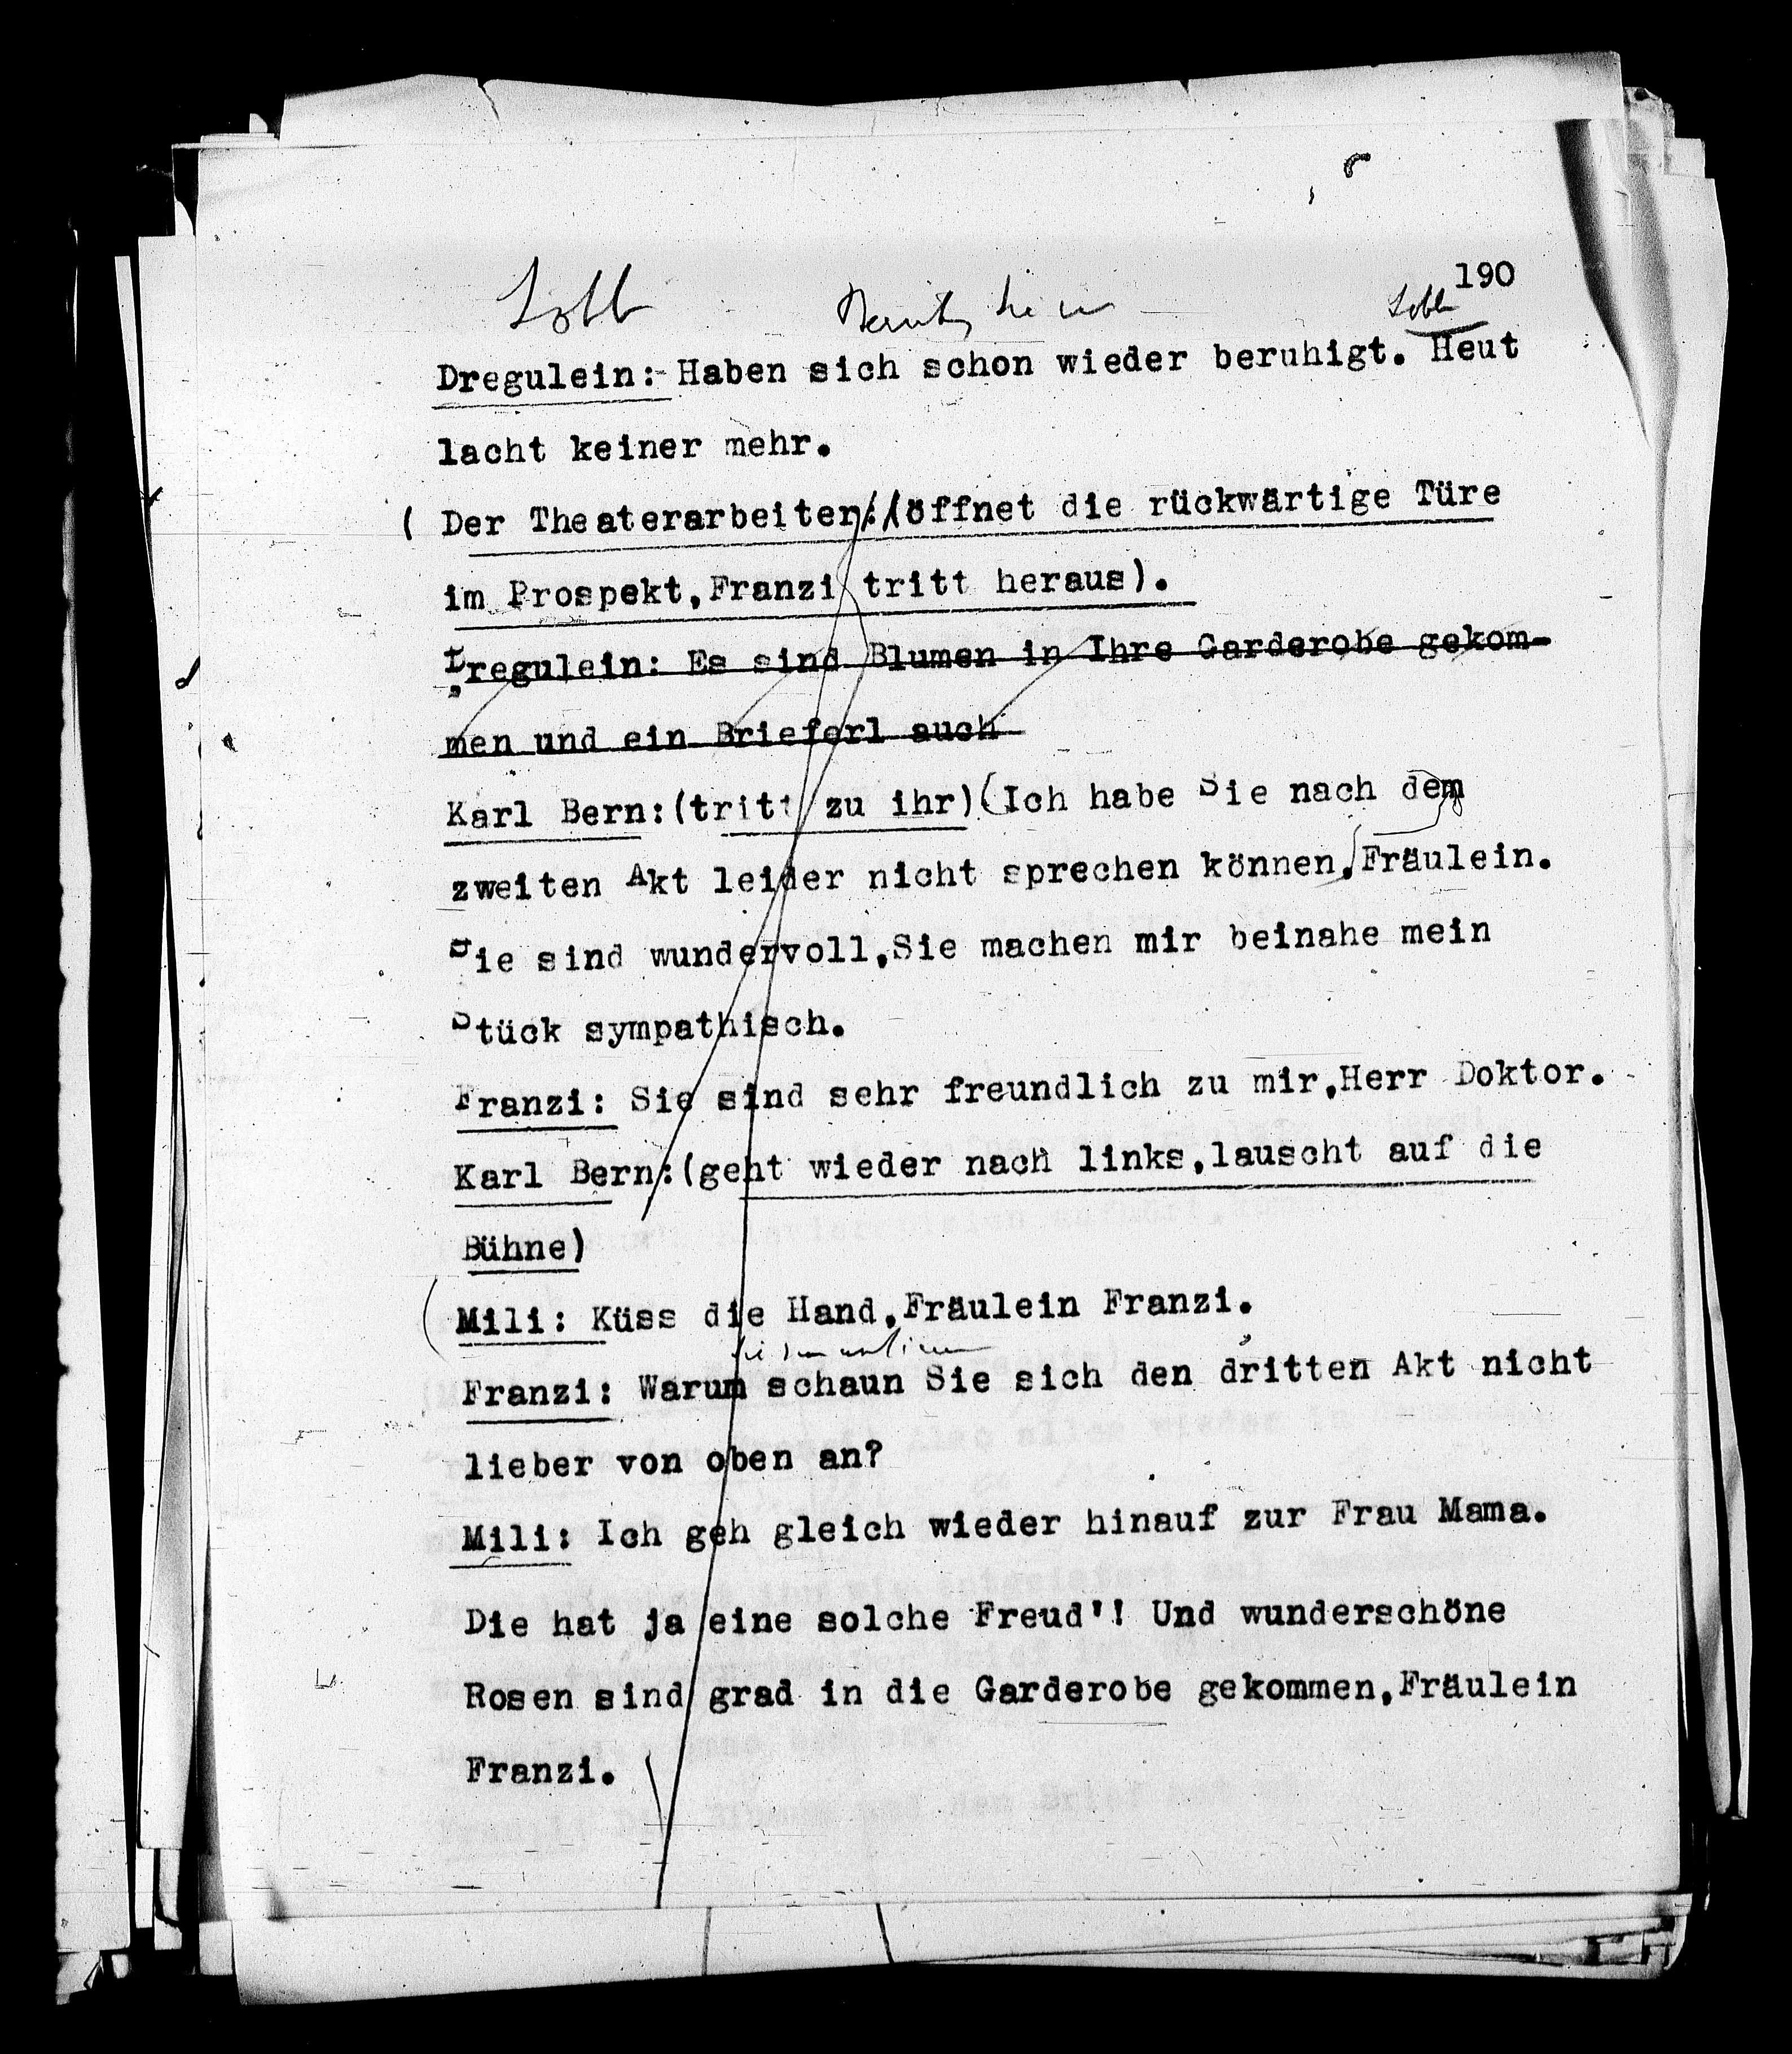 190
Dregulein: Haben sich schon wieder beruhigt. Heut
lacht keiner mehr.
( Der Theaterarbeiter:(öffnet die rückwärtige Türe
im Prospekt,Franzi tritt heraus).
Dregulein: Es sind Blumen in Ihre Garderobe gekom-
men und ein Brieferl auch
Karl Bern:(tritt zu ihr)(Ich habe Sie nach dem
zweiten Akt leider nicht sprechen können,Fräulein.
Sie sind wundervoll,Sie machen mir beinahe mein
Stück sympathisch.
Franzi: Sie sind sehr freundlich zu mir,Herr Doktor.
Karl Bern:(geht wieder nach links,lauscht auf die
Bühne)
Mili: Küss die Hand,Fräulein Franzi.
Franzi: Warum schaun Sie sich den dritten Akt nicht
lieber von oben an?
Mili: Ich geh gleich wieder hinauf zur Frau Mama.
Die hat ja eine solche Freud'! Und wunderschöne
Rosen sind grad in die Garderobe gekommen,Fräulein
Franzi.